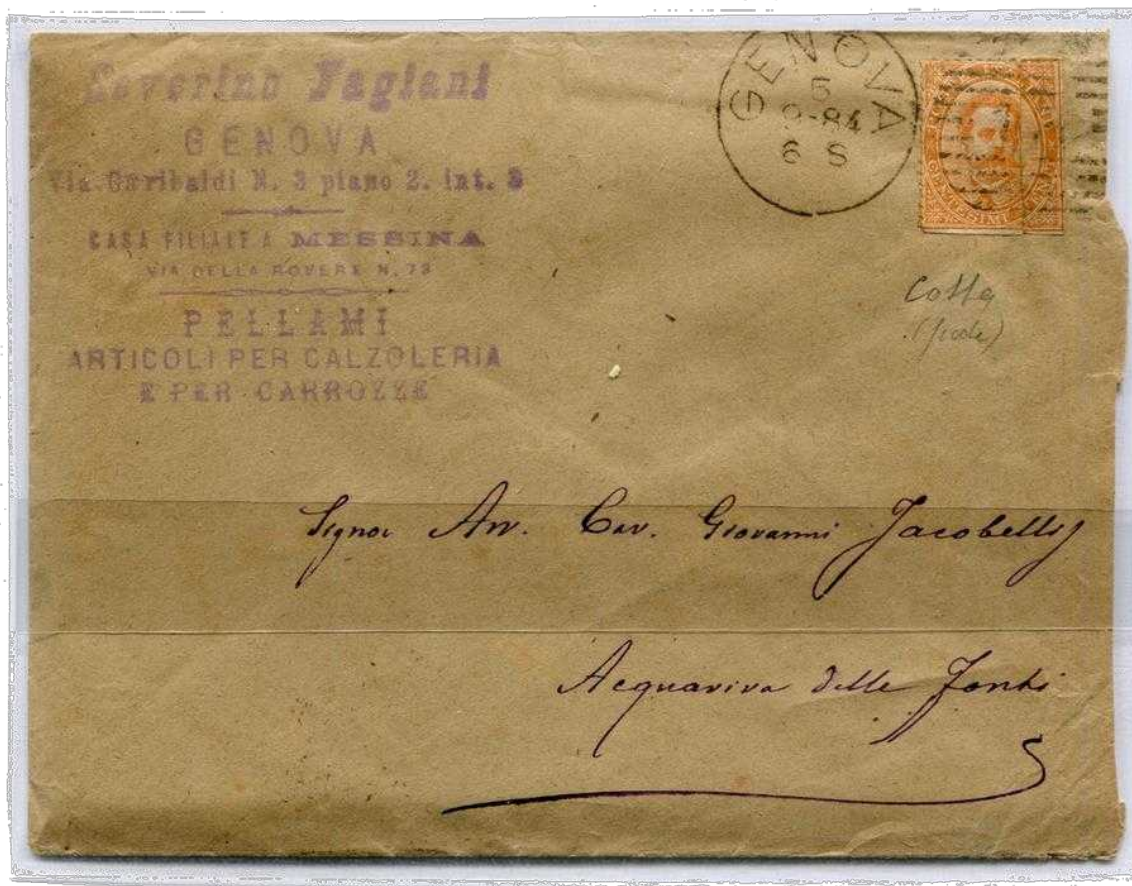 Severino Fagiani
GENOVA
Via Garibaldi N. 3 piano 2. int. 3
CASA FILIALE A MESSINA
VIA DELLA ROVERE N. 73
PELLAMI
ARTICOLI PER CALZOLERIA
E PER CARROZZE
GENOVA
5
9-84
6 S
Signor Av. Cav. Giovanni Jacobellis
Acquaviva delle Fonti